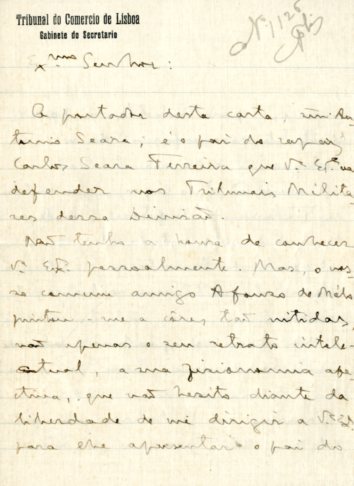 Tribunal do Comercio de Lisboa
Gabinete do Secretario
Nº 1125
Exmo Senhor:
O portador desta carta, snr An-
tonio Seara, é o pai do rapaz
Carlos Seara Ferreira que V. Exª vai
defender nos Tribunais Milita-
res dessa Divisão.
Não tenho a honra de conhecer
V. Exª pessoalmente. Mas, o nos-
so comum amigo Afonso de Mélo
pintou-me a côres, tão nitidas,
não apenas o seu retrato intele-
ctual, a sua fisionomia afe-
ctiva, que não hesito diante da
liberdade de me dirigir a V. Exª
para lhe apresentar o pai do